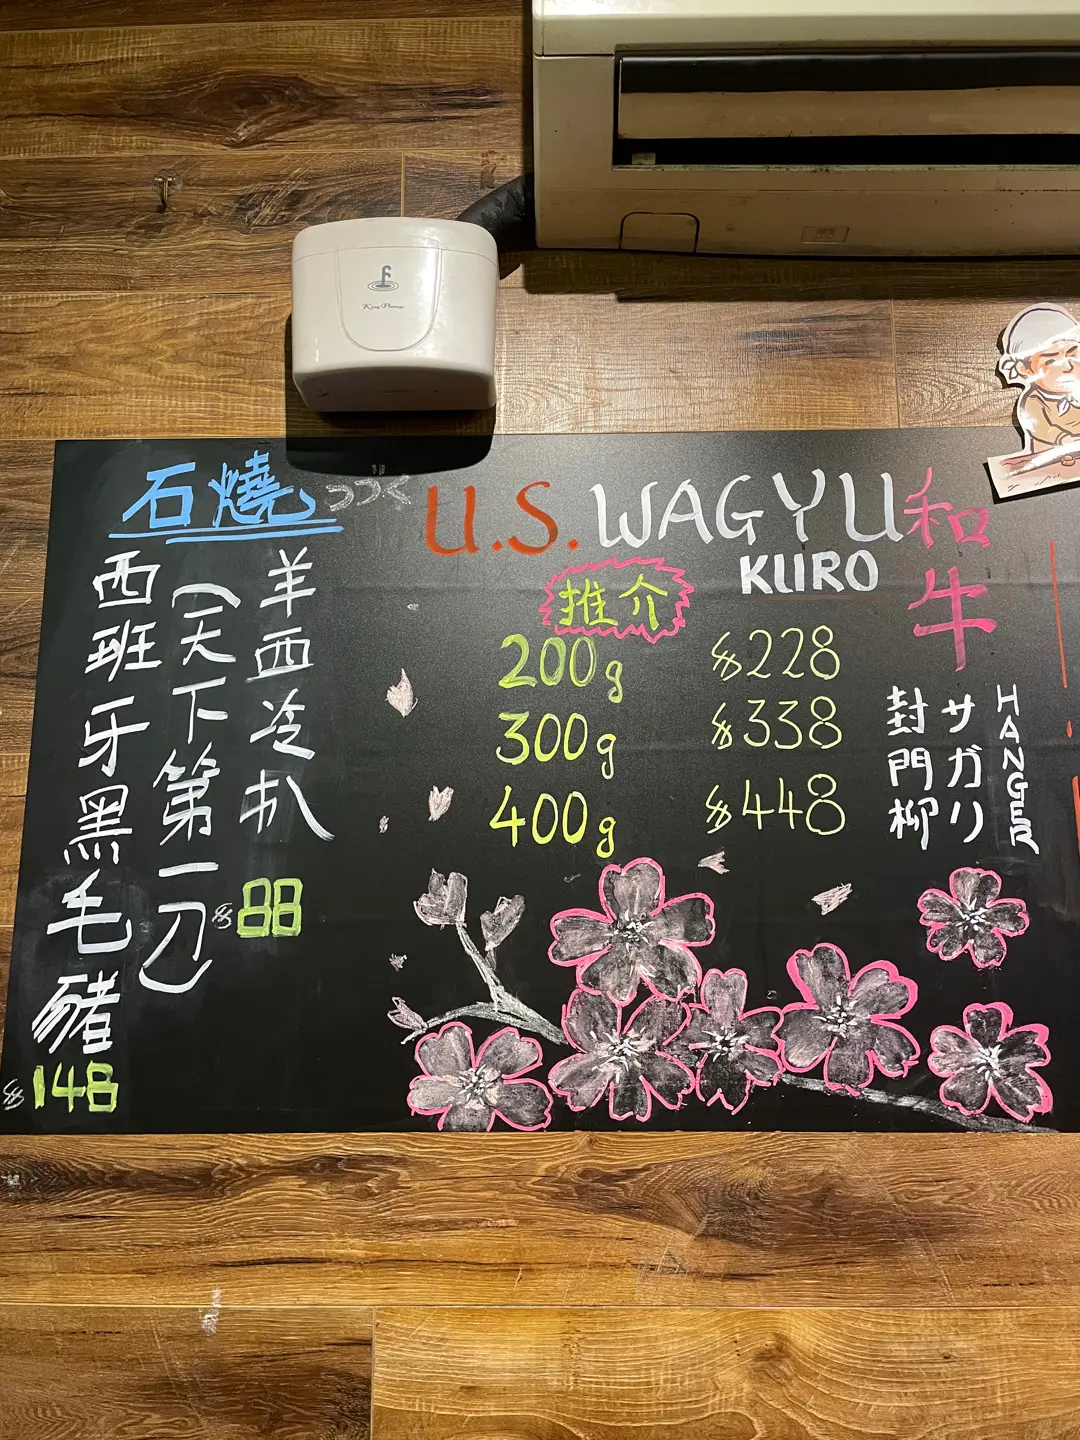 King Pump
石燒
羊西冷扒
$88
(天下第一刀)
西班牙黑毛豬
$148
U.S. WAGYU 和牛
KURO
推介
200g $228
300g $338
400g $448
HANGER
サガリ
封門柳